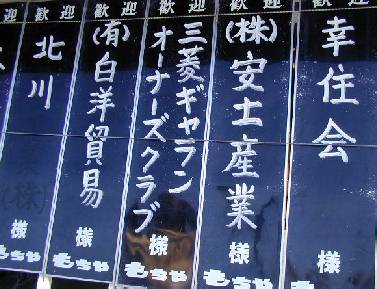 歓迎
幸住会
歓迎
(株)安士産業
様
もちや
歓迎
三菱ギャラン
オーナーズクラブ
様
もちや
歓迎
(有)白洋貿易
様
もちや
歓迎
北川
様
もちや
(株)
様
もちや